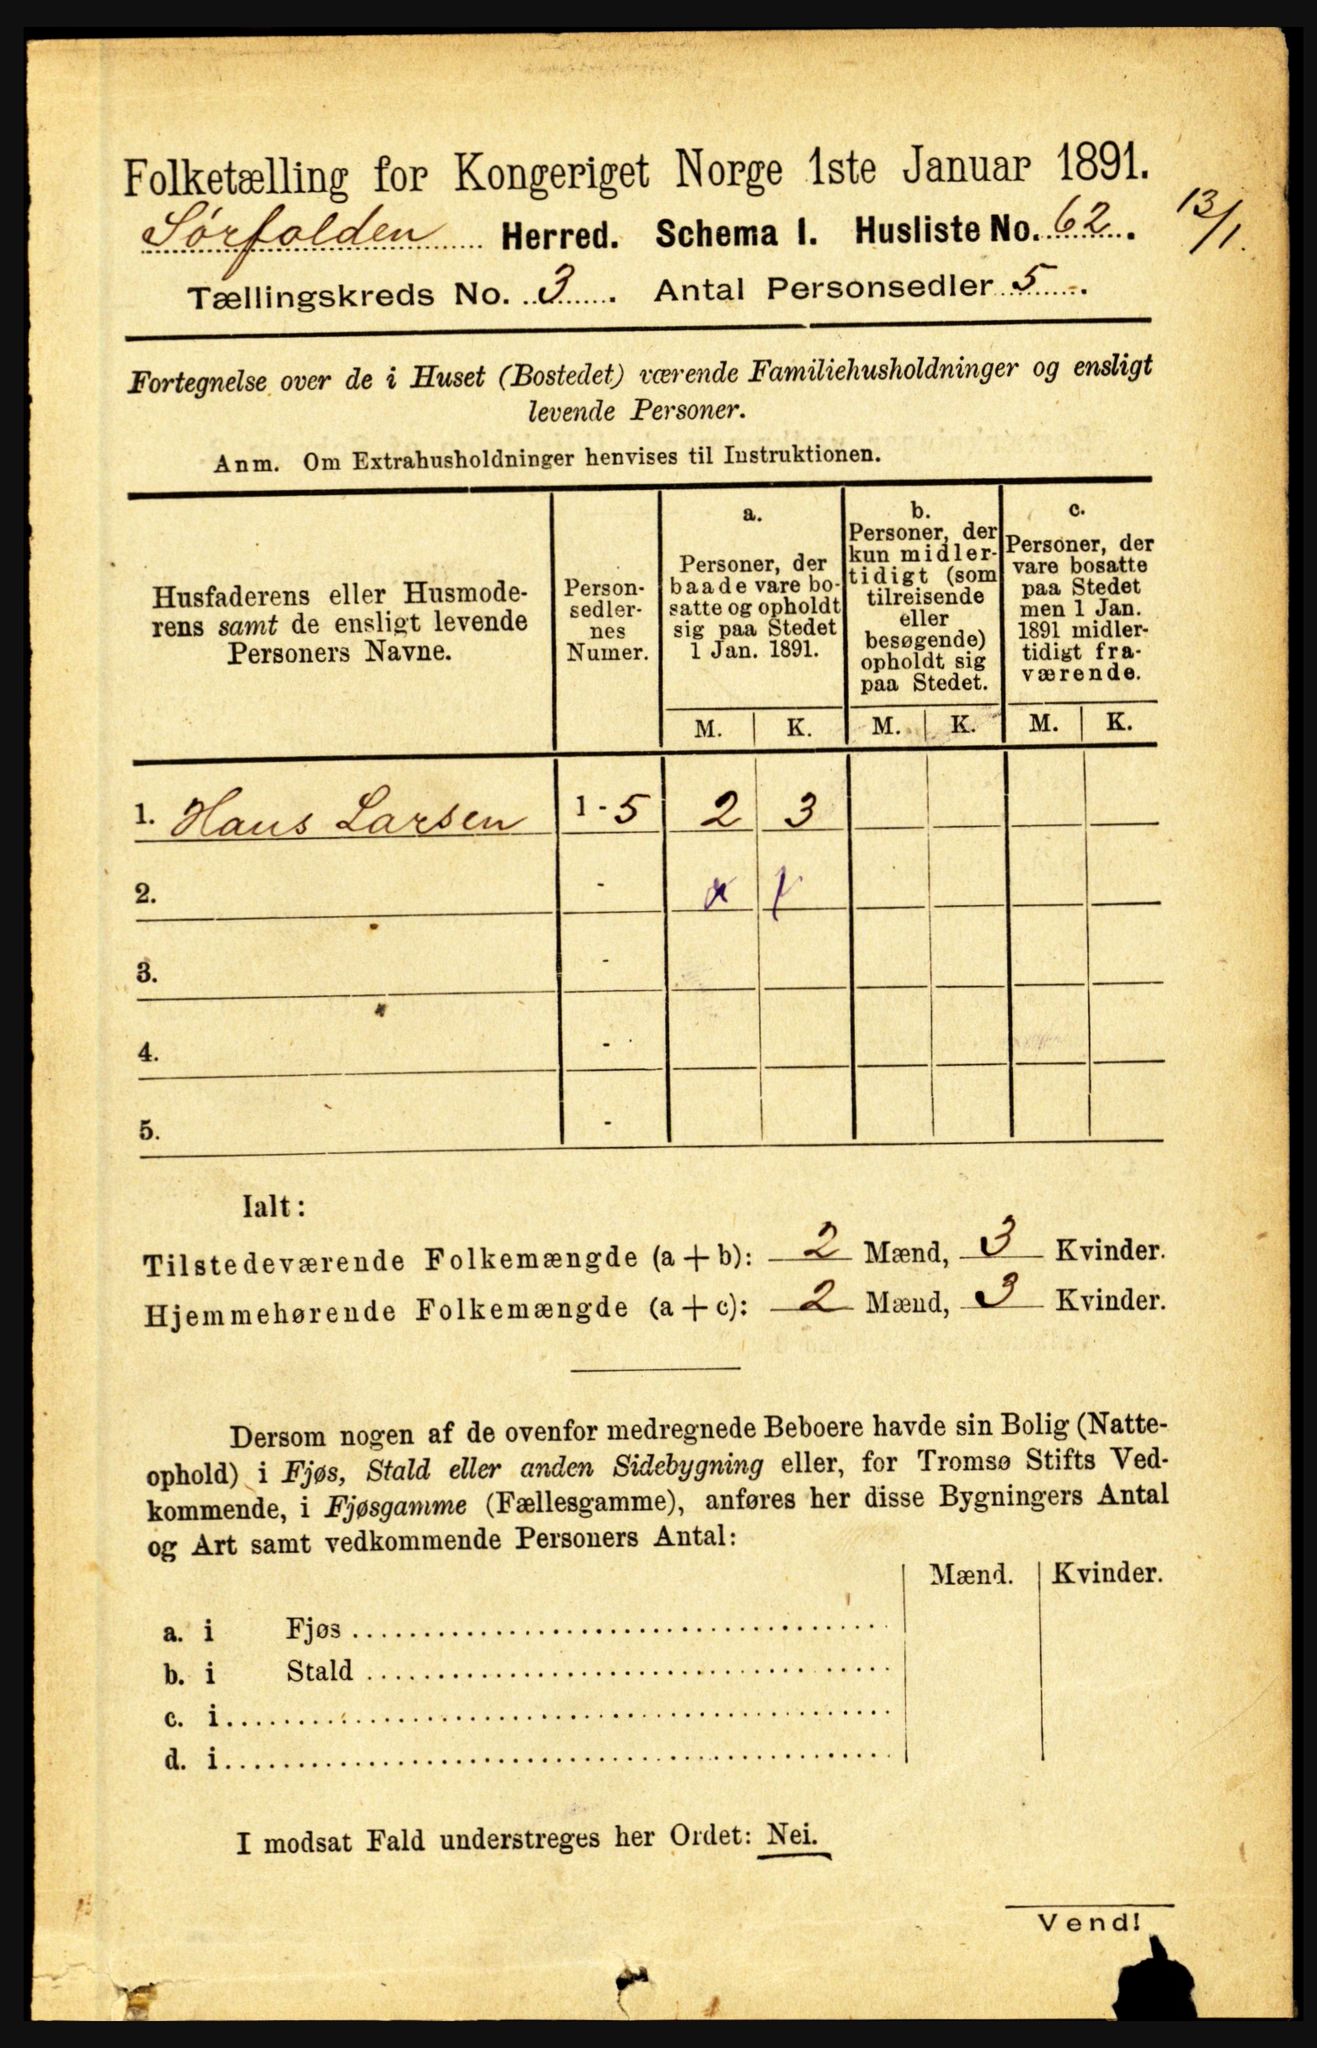 Folketælling for Kongeriget Norge 1ste Januar 1891.
Sørfolden Herred. Schema I. Husliste No. 62.
13/1.
Tællingskreds No. 3. Antal Personsedler 5.
Fortegnelse over de i Huset (Bostedet) værende Familiehusholdninger og ensligt
levende Personer.
Anm. Om Extrahusholdninger henvises til Instruktionen.
Husfaderens eller Husmode-
rens samt de ensligt levende
Personers Navne.
Person-
sedler-
nes
Numer.
a.
Personer, der
baade vare bo-
satte og opholdt
sig paa Stedet
1 Jan. 1891.
M. K.
b.
Personer, der
kun midler-
tidigt (som
tilreisende
eller
besøgende)
opholdt sig
paa Stedet.
M. K.
c.
Personer, der
vare bosatte
paa Stedet
men 1 Jan.
1891 midler-
tidigt fra-
værende.
M. K.
1. Hans Larsen 1 - 5 2 3
2. - x x
3. -
4. -
5. -
Ialt:
Tilstedeværende Folkemængde (a + b): 2 Mænd, 3 Kvinder.
Hjemmehørende Folkemængde (a + c): 2 Mænd, 3 Kvinder.
Dersom nogen af de ovenfor medregnede Beboere havde sin Bolig (Natte-
ophold) i Fjøs, Stald eller anden Sidebygning eller, for Tromsø Stifts Ved-
kommende, i Fjøsgamme (Fællesgamme), anføres her disse Bygningers Antal
og Art samt vedkommende Personers Antal:
Mænd. Kvinder.
a. i Fjøs
b. i Stald
c. i
d. i
I modsat Fald understreges her Ordet: Nei.
Vend!